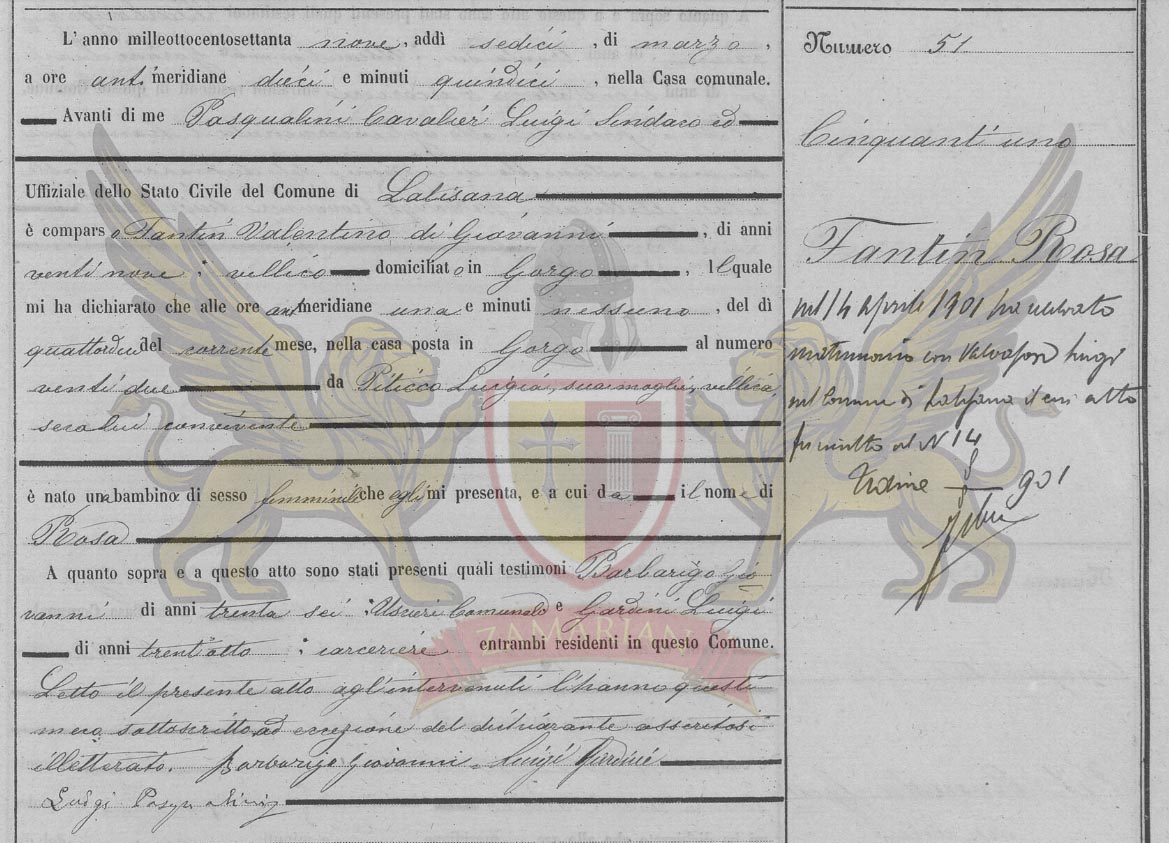 L'anno milleottocentosettanta nove, addì sedici, di marzo,
a ore antimeridiane dieci e minuti quindici, nella Casa comunale.
Avanti di me Pasqualini Cavalier Luigi Sindaco ed
Uffiziale dello Stato Civile del Comune di Latisana
è comparso Fantin Valentino di Giovanni, di anni
venti nove; villico domiciliato in Gorgo, Il quale
mi ha dichiarato che alle ore antmeridiane una e minuti nessuno, del dì
quattordici del corrente mese, nella casa posta in Gorgo al numero
venti due da Piticco Luigia, sua moglie, villica,
seco lui convivente
è nato una bambina di sesso femminile che egli mi presenta, e a cui da il nome di
Rosa
A quanto sopra e a questo atto sono stati presenti quali testimoni Barbarigo Gio
vanni di anni trenta sei; Usciere Comunale e Gardini Luigi
di anni trent'otto; carceriere entrambi residenti in questo Comune.
Letto il presente atto agl'intervenuti l'hanno questi
meco sottoscritto ad eccezione del dichiarante assertosi
illetterato. Barbarigo Giovanni. Luigi Gardini
Luigi Pasqualini
Numero 51
Cinquant'uno
Fantin Rosa
nel 14 aprile 1901 fu celebrato
matrimonio con Luigi
nel Comune di Latisana il cui atto
fu al N 14
Udine 901
ZAMARIAN